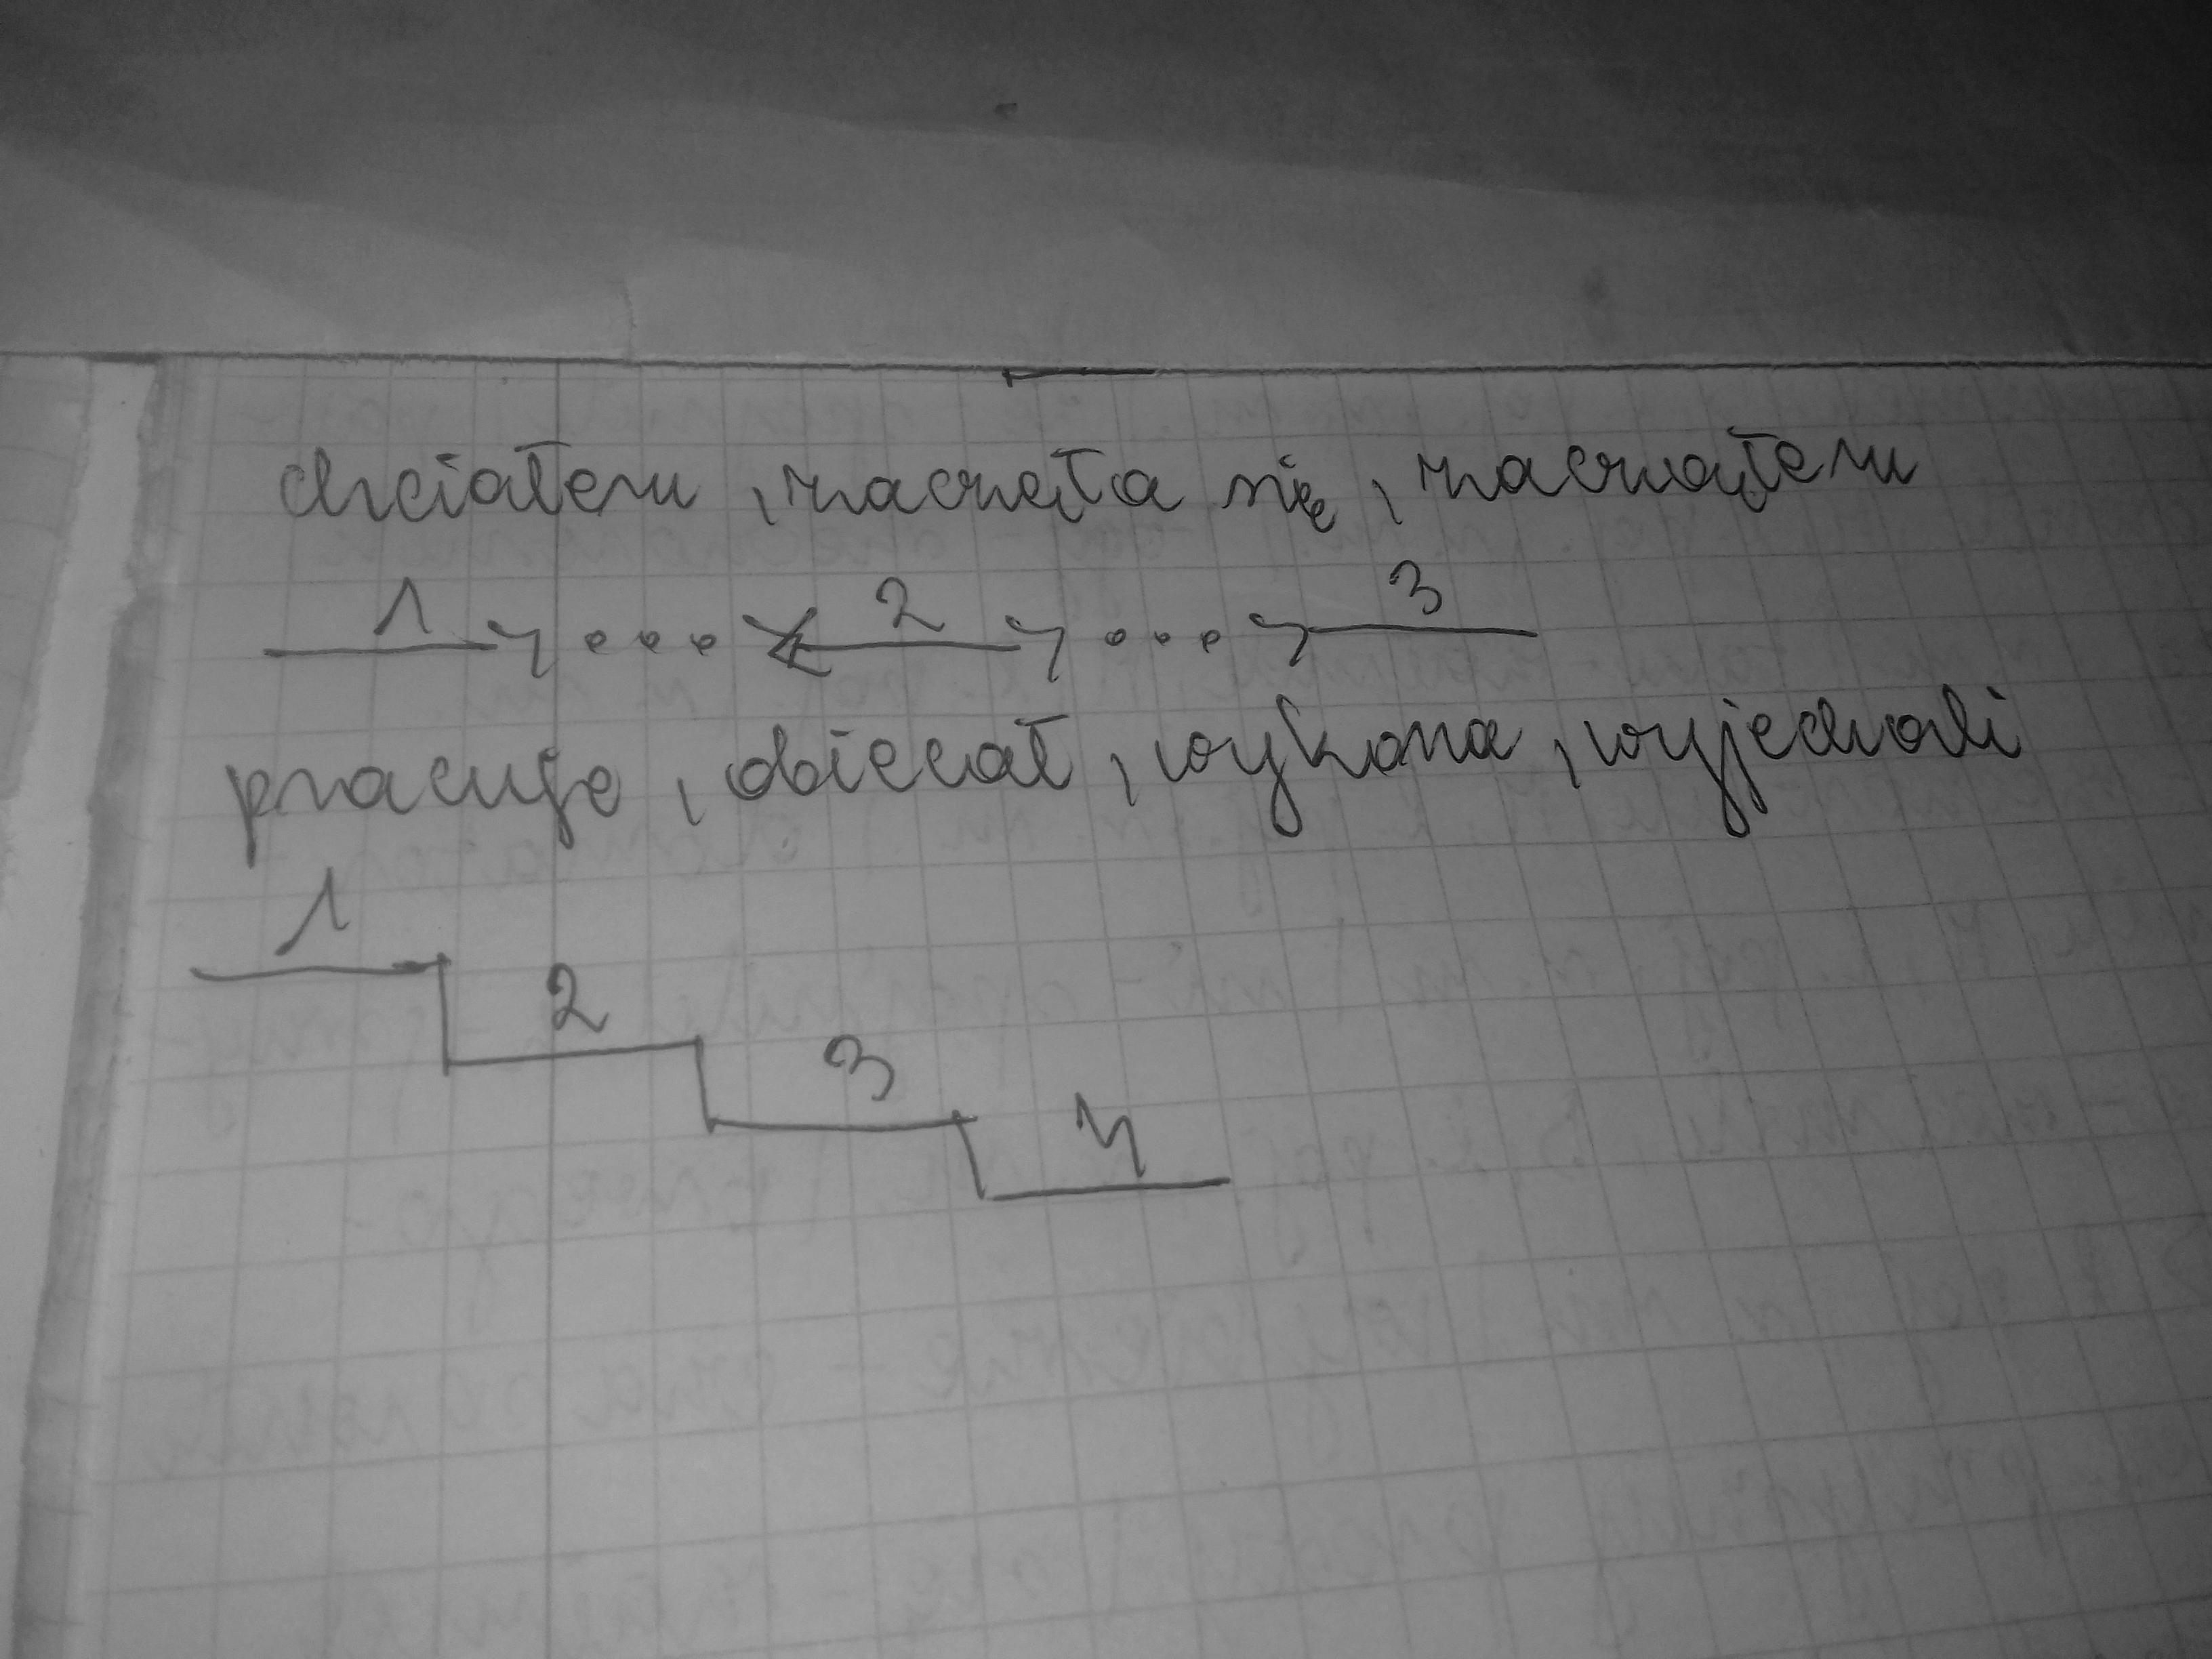 chciałem, zaczęła się, zacząłem
1 2 3
pracuje, obiecał, wykona, wyjechali
1
2
3
4